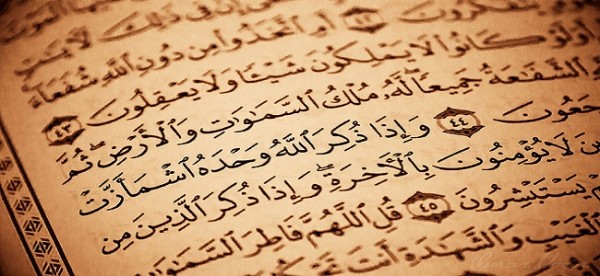 فِى ذَٰلِكَ لَـَٔايَـٰتٍ
يَتَفَكَّرُونَ ٤٢ أَمِ ٱتَّخَذُوا۟ مِن دُونِ ٱللَّهِ شُفَعَآءَ
أَوَلَوْ كَانُوا۟ لَا يَمْلِكُونَ شَيْـًٔا وَلَا يَعْقِلُونَ ٤٣
ٱلشَّفَـٰعَةُ جَمِيعًا لَّهُۥ مُلْكُ ٱلسَّمَـٰوَٰتِ وَٱلْأَرْضِ ثُمَّ
جَعُونَ ٤٤ وَإِذَا ذُكِرَ ٱللَّهُ وَحْدَهُ ٱشْمَأَزَّتْ
ينَ لَا يُؤْمِنُونَ بِٱلْـَٔاخِرَةِ وَإِذَا ذُكِرَ ٱلَّذِينَ مِن
يَسْتَبْشِرُونَ ٤٥ قُلِ ٱللَّهُمَّ فَاطِرَ ٱلسَّمَـٰوَٰ
ٱلْغَيْبِ وَٱلشَّهَـٰدَةِ أَنتَ تَحْكُمُ